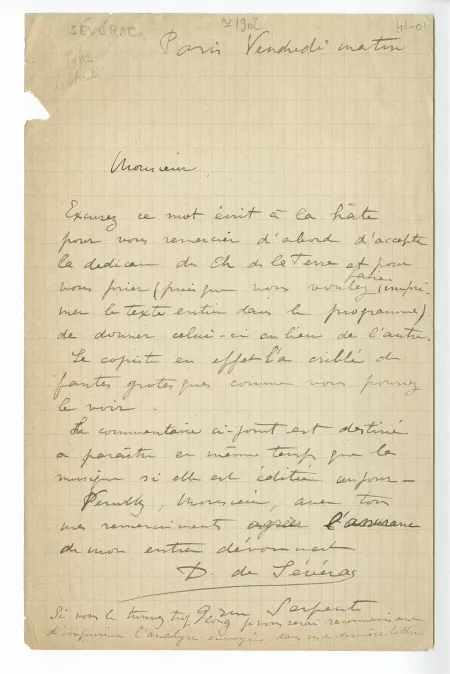 SÉVÉRAC
Z 1902
Paris Vendredi matin
Monsieur
Excusez ce mot écrit à la hâte
pour vous remercier d'abord d'accepter
la dedicace du Ch de la Terre et pour
vous prier (puisque vous voulez faire impri-
mer le texte entier dans le programme)
de donner celui-ci au lieu de l'autre.
Le copiste en effet l'a criblé de
fautes grotesques comme vous pourrez
le voir.
Le commentaire ci-joint est destiné
à paraître en même temps que la
musique si elle est éditée un jour –
Veuillez, Monsieur, avec tous
mes remerciments agréer l'assurance
de mon entier dévouement
D. de Sévérac
9 rue Serpent
Si vous le trouvez trop long je vous serai reconnaissant
d'imprimer l'analyse envoyée dans ma dernière lettre